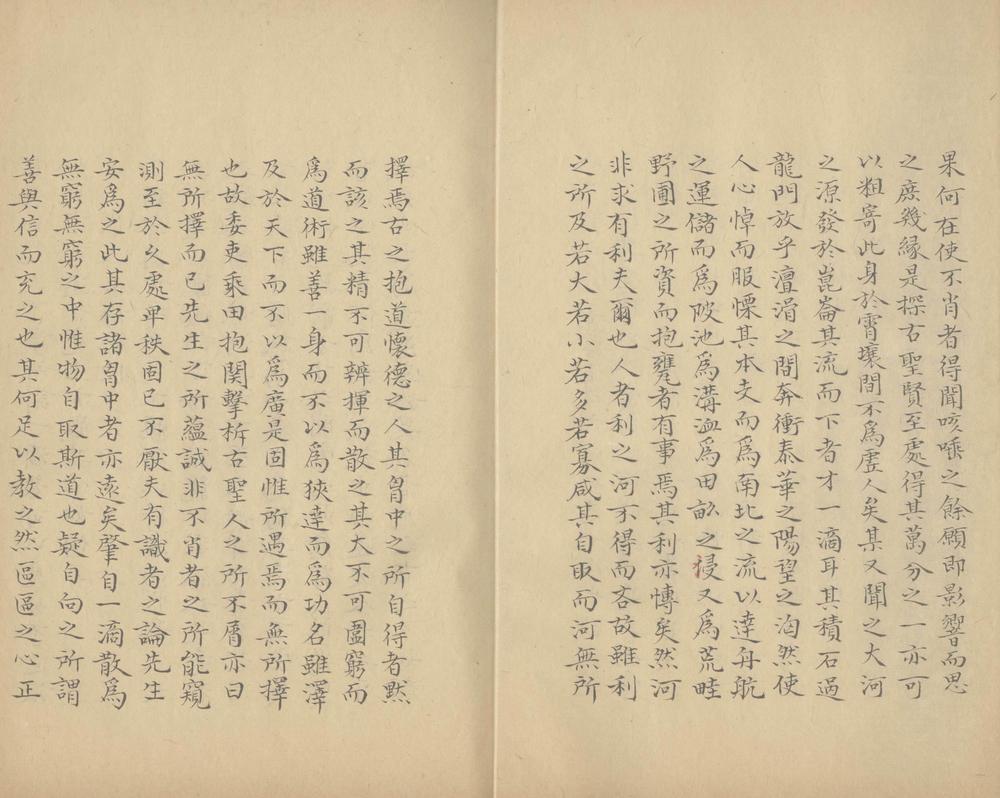 果何在使不肖者得聞咳唾之餘願即影響而思
之庶幾緣是探古聖賢至處得其萬分之一亦可
以粗寄此身於霄壤間不爲虛人矣某又聞之大河
之源發於崑崙其流而下者才一滴耳其積石過
龍門放乎澶滑之間奔衝泰華之陽望之洶然使
人心悼而服慄其本支而爲南北之流以達舟航
之運儲而爲陂池爲溝洫爲田畝之浸又爲荒畦
野圃之所資而抱甕者有事焉其利亦慱矣然河
非求有利夫爾也人者利之河不得而吝故雖利
之所及若大若小若多若寡咸其自取而河無所
擇焉古之抱道懷德之人其胷中之所自得者默
而該之其精不可辨揮而散之其大不可圍窮而
爲道術雖善一身而不以爲狹達而爲功名雖澤
及於天下而不以爲廣是固惟所遇焉而無所擇
也故委吏乘田抱関擊柝古聖人之所不屑亦曰
無所擇而已先生之所蘊誠非不肖者之所能窺
測至於久處卑秩固已不厭夫有識者之論先生
安爲之此其存諸胷中者亦遠矣肇自一滴散爲
無窮無窮之中惟物自取斯道也疑自向之所謂
善與信而充之也其何足以教之然區區之心正